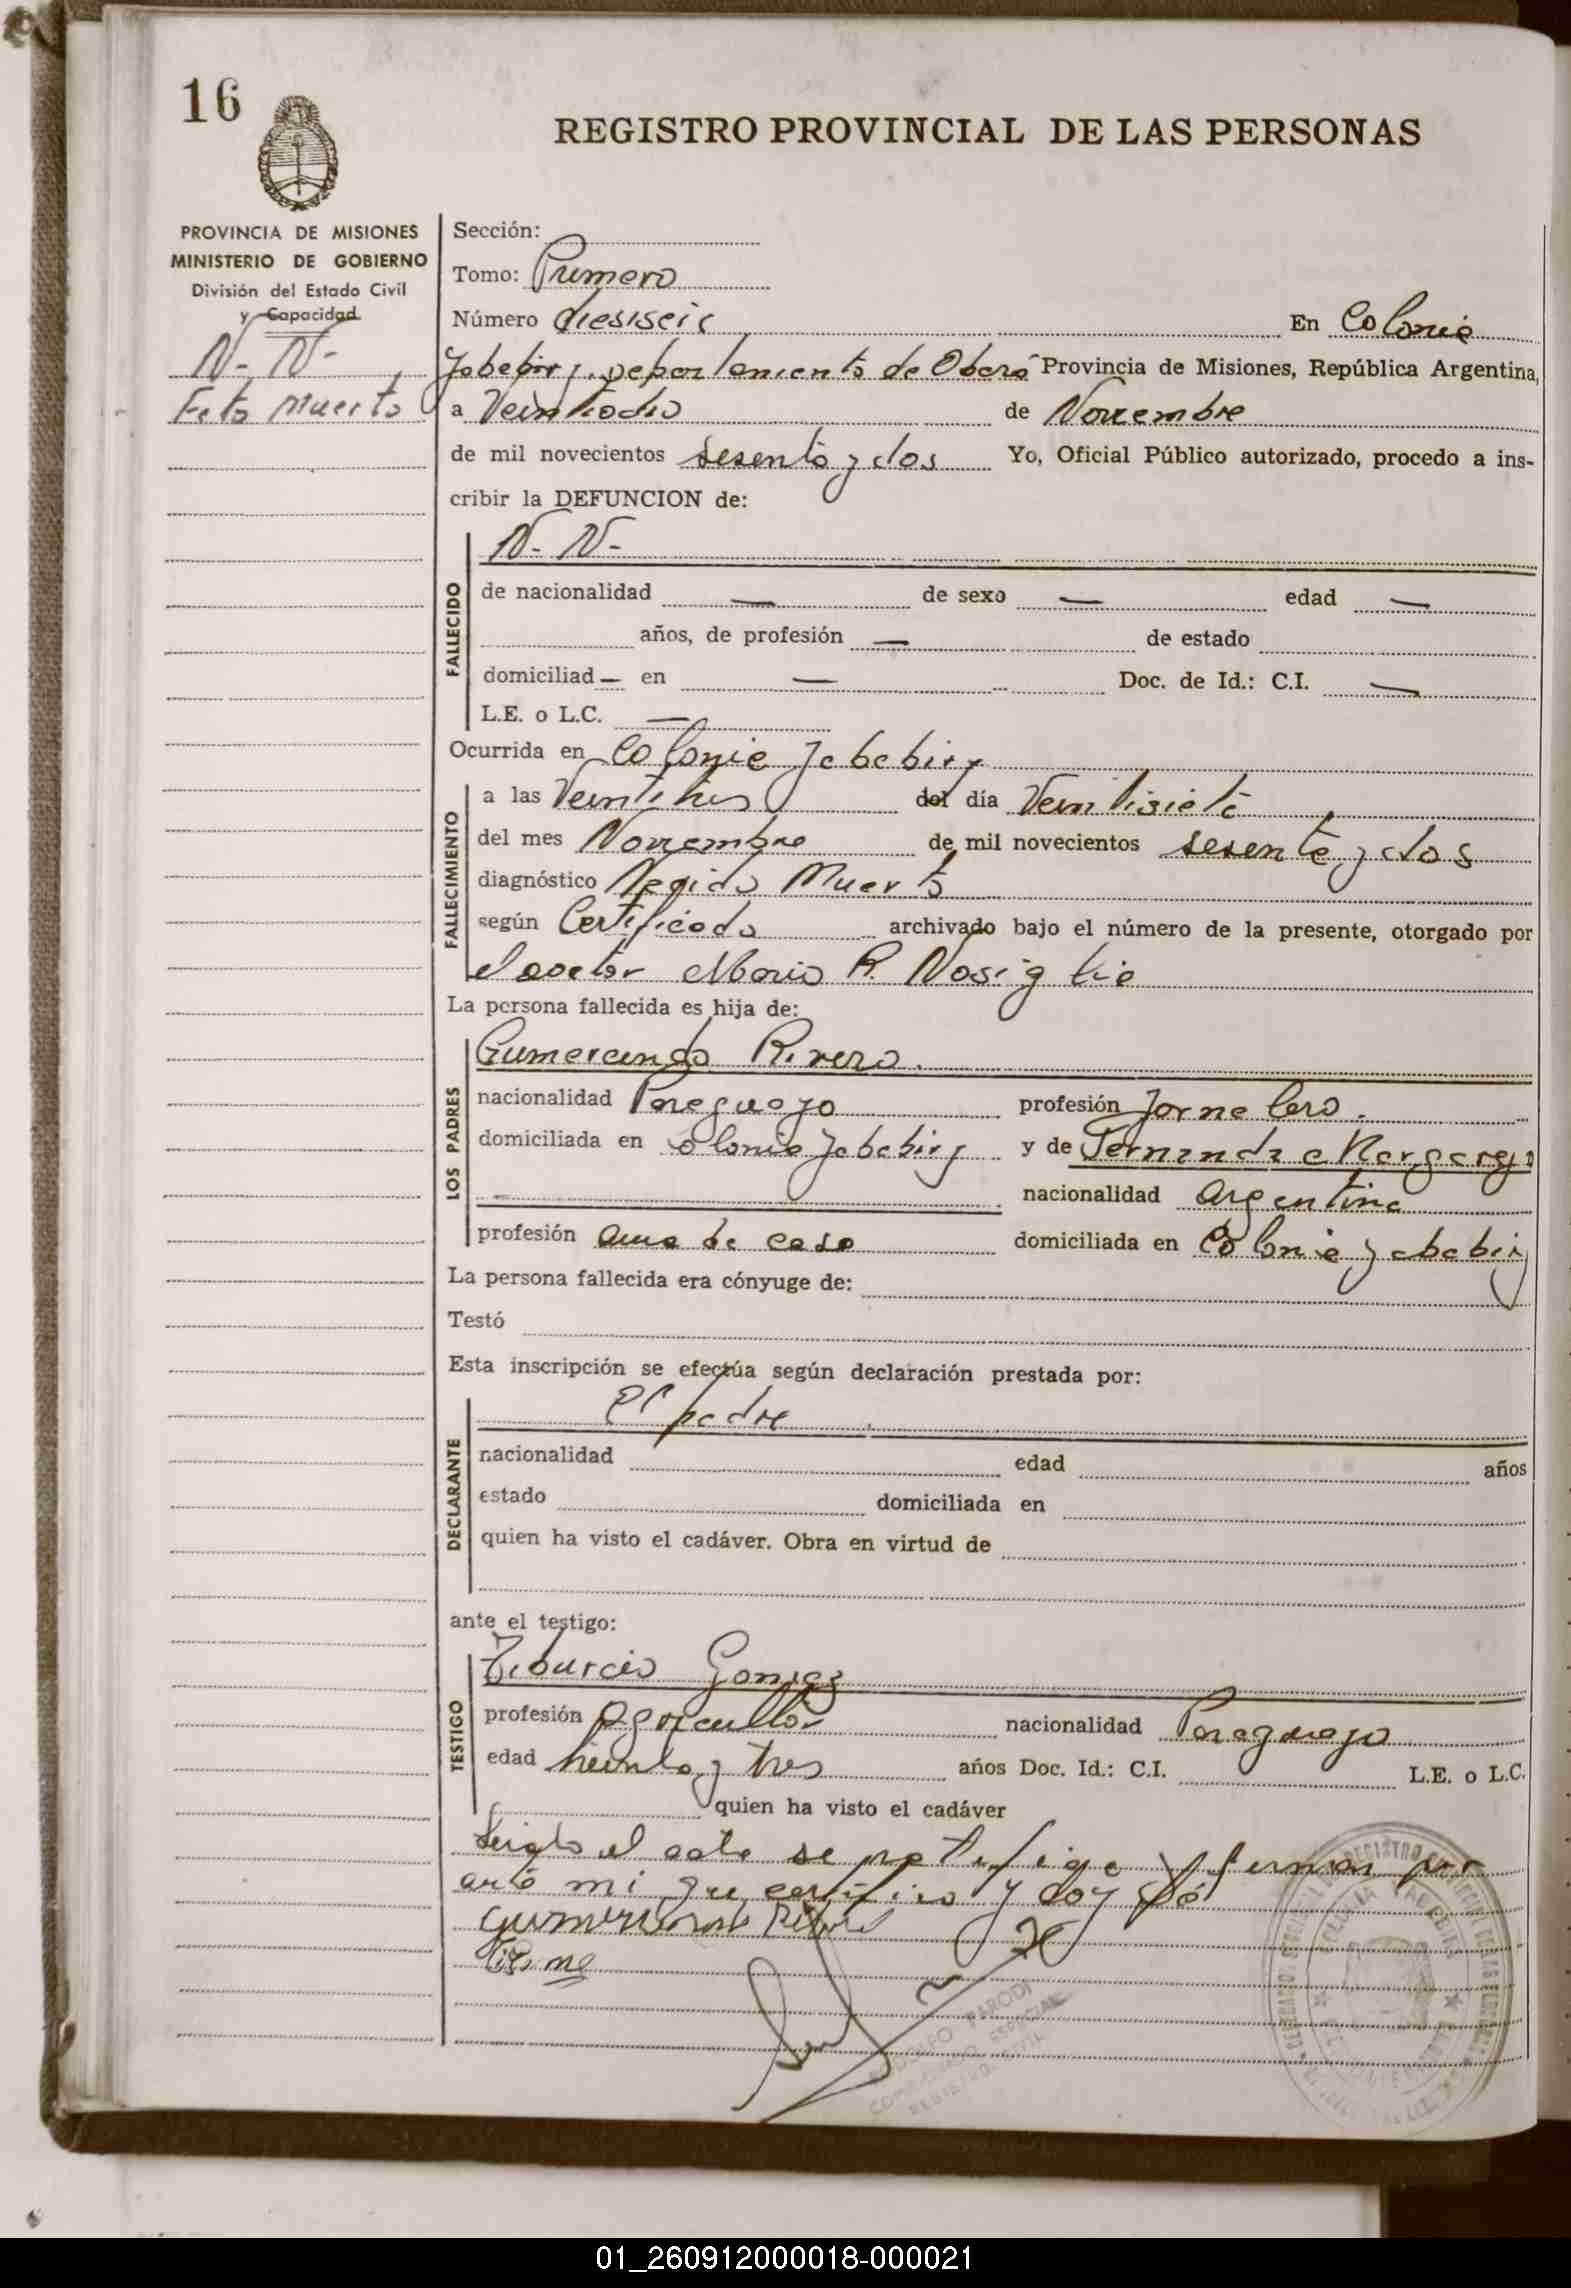 16
REGISTRO PROVINCIAL DE LAS PERSONAS
PROVINCIA DE MISIONES
MINISTERIO DE GOBIERNO
División del Estado Civil
y Capacidad
N- N-
Feto Muerto
Sección:
Tomo: Primero
Número diesiseis En Colonia
Yabebiry, departamento de Oberá Provincia de Misiones, República Argentina,
a Veintiocho de Noviembre
de mil novecientos sesenta y dos Yo, Oficial Público autorizado, procedo a ins-
cribir la DEFUNCION de:
FALLECIDO
N- N-
de nacionalidad — de sexo — edad —
años, de profesión — de estado
domiciliad — en — Doc. de Id.: C.I. —
L.E. o L.C. —
Ocurrida en Colonia Yabebiry
FALLECIMIENTO
a las Veintitres del día Veintisiete
del mes Noviembre de mil novecientos sesenta y dos
diagnóstico Nacido Muerto
según Certificado archivado bajo el número de la presente, otorgado por
el doctor Mario R. Nosiglia
La persona fallecida es hija de:
LOS PADRES
Gumercindo Rivero.
nacionalidad Paraguayo profesión Jornalero.
domiciliada en Colonia Yabebiry y de Fernanda
nacionalidad argentina
profesión ama de casa domiciliada en Colonia Yabebiry
La persona fallecida era cónyuge de:
Testó
Esta inscripción se efectúa según declaración prestada por:
DECLARANTE
El padre
nacionalidad edad años
estado domiciliada en
quien ha visto el cadáver. Obra en virtud de
ante el testigo:
TESTIGO
Tiburcio Gomez
profesión Agricultor nacionalidad Paraguayo
edad treinta y tres años Doc. Id.: C.I. L.E. o L.C.
quien ha visto el cadáver
Leida el acta se ratifica y firman por
ante mi que certifico y doy fé
RODOLFO PARODI
COMISIONADO ESPECIAL
REGISTRO CIVIL
01_260912000018-000021